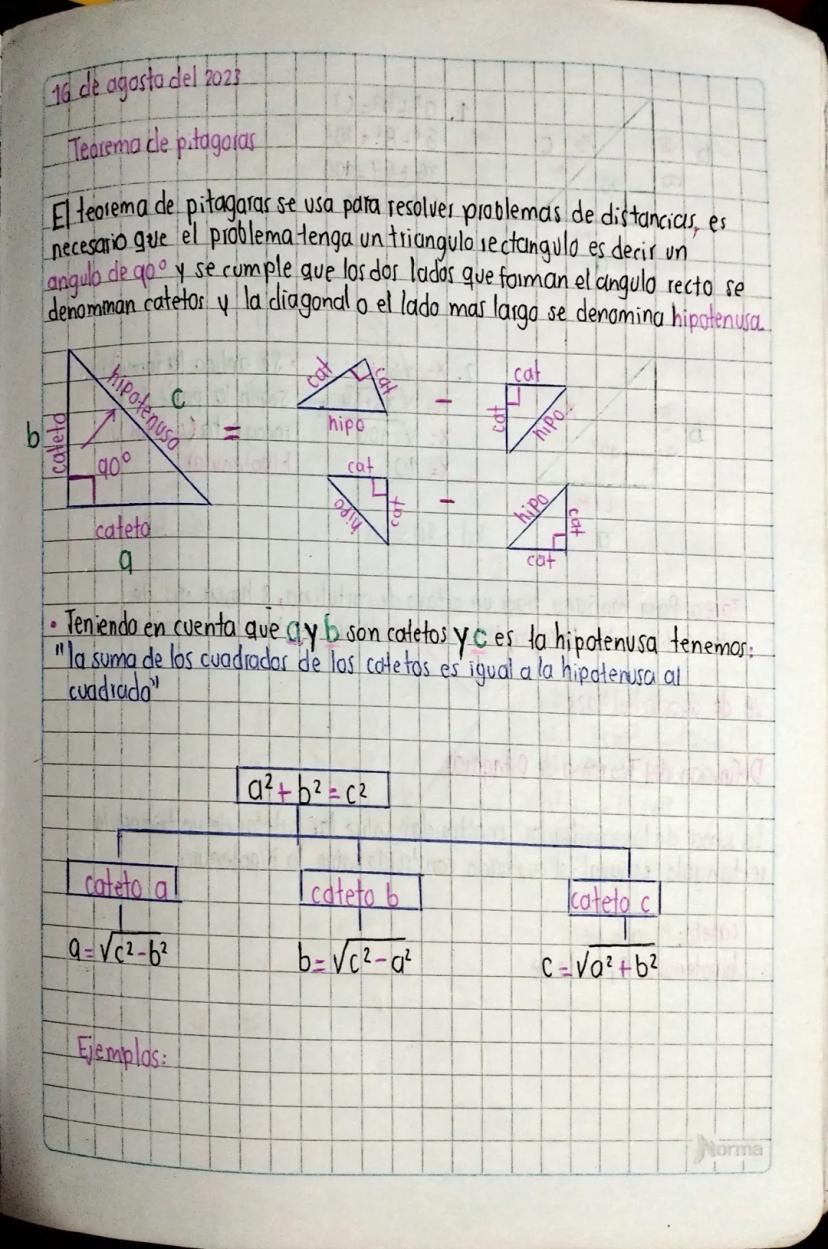 16 de agosto del 2023
Teorema de pitagoras
El teorema de pitagoras se usa para resolver problemas de distancias, es
necesario que el problema tenga un triangulo rectangulo es decir un
angulo de 90° y se cumple que los dos lados que forman el angulo recto se
denomman catetos y la diagonal o el lado mas largo se denomina hipotenusa
b cateto 90° hipotenusa c
cateto
a
=
cat cat
hipo
-
cat
cat hipo
cat
hipo cat
-
hipo cat
cat
• Teniendo en cuenta que a y b son catetos y c es la hipotenusa tenemos:
"la suma de los cuadrados de los catetos es igual a la hipotenusa al
cuadrado"
a² + b² = c²
cateto a cateto b cateto c
a = √c² - b² b = √c² - a² c = √a² + b²
Ejemplos:
Norma